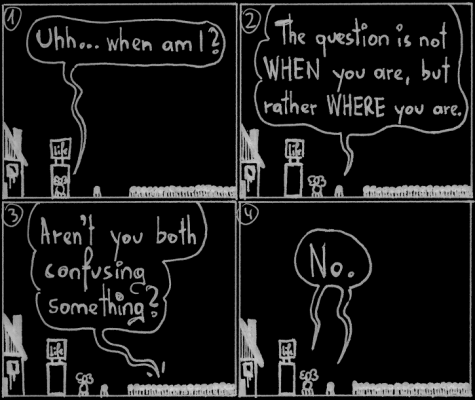 1
Uhh... when am I?
life
2
The question is not
WHEN you are, but
rather WHERE you are.
life
3
Aren't you both
confusing
something?
life
4
No.
life